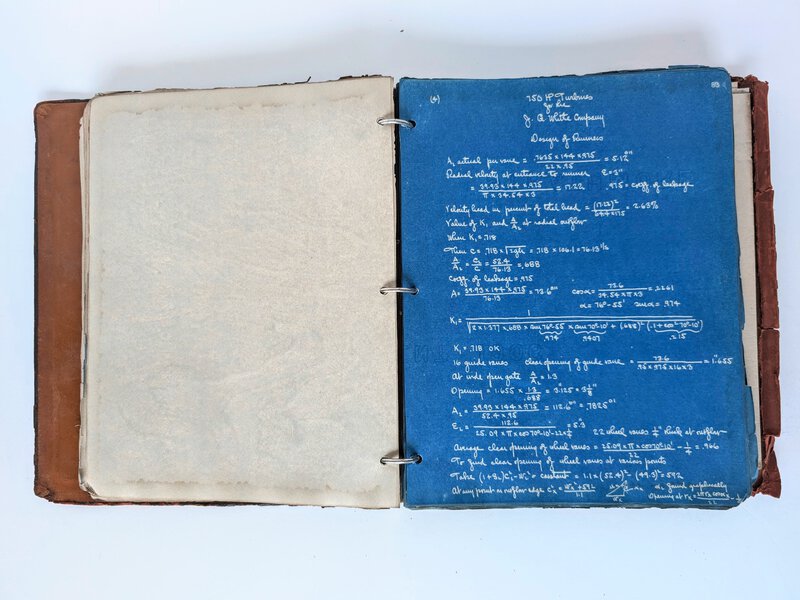 (4) 83
750 HP Turbines
for the
J. G. White Company
Design of Runners
A, actual per vane = .7635 × 144 × .975 / 22 × .95 = 5.12□"
Radial velocity at entrance to runner E = 3"
= 39.93 × 144 × .975 / π × 34.54 × 3 = 17.22 .975 = coeff. of leakage
Velocity head in percent of total head = (17.22)² / 64.4 × 175 = 2.63%
Value of K₁ and A/A₂ at radial outflow
When K₁ = .718
Then C = .718 × √2gh = .718 × 106.1 = 76.13 '/s
A/A₂ = C₂/C = 52.4/76.13 = .688
Coeff of leakage = .975
A = 39.93 × 144 × .975 / 76.13 = 73.6□" cos α = 73.6 / 34.54 × π × 3 = .2261
α = 76°-55' sin α = .974
K₁ = 1 / √(2 × 1.377 × .688 × sin 76°-55' × sin 70°-10' + (.688)² (.1 + cos² 70°-10'))
.974 .9407 .215
K₁ = .718 OK
16 guide vanes clear opening of guide vane = 73.6 / .95 × .975 × 16 × 3 = 1".655
At wide open gate A/A₂ = 1.3
Opening = 1.655 × 1.3/.688 = 3".125 = 3 1/8"
A₂ = 39.93 × 144 × .975 / 52.4 × .95 = 112.6□" = .7825□'
E₂ = 112.6 / 25.09 × π × cos 70°-10' - 22 × 1/4 = 5".3 22 wheel vanes 1/4" thick at outflow
Average clear opening of wheel vanes = 25.09 × π × cos 70°-10' / 22 - 1/4 = .966
To find clear opening of wheel vanes at various points
Take (1+g₂)C₂² - W₂² = constant = 1.1 × (52.4)² - (49.3)² = 592
At any point on outflow edge Cₓ² = Wₓ² + 592 / 1.1 α₂ found graphically
Opening at rₓ =